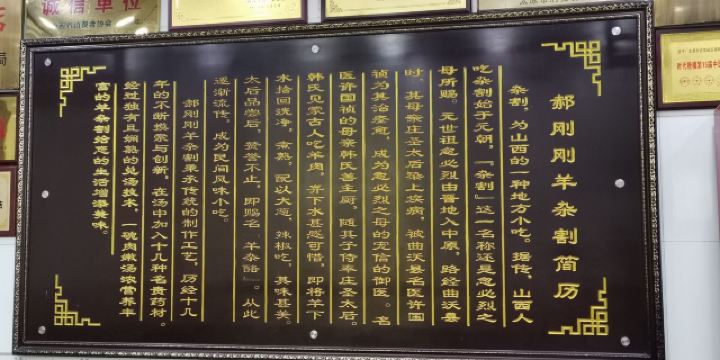 郝刚刚羊杂割简历
杂割,为山西的一种地方小吃。据传,山西人
吃杂割始于元朝,「杂割」这一名称还是忽必烈之
母所赐。元世祖忽必烈由晋地入中原,路经曲沃县
时,其母亲庄圣太后染上疾病,被曲沃县名医许国
祯为其治痊愈,成为忽必烈之母的宠信的御医。名
医许国祯的母亲韩氏善主厨,随其子侍奉庄圣太后。
韩氏见蒙古人吃羊肉,弃下水甚感可惜,即将羊下
水拾回洗净,煮熟,配以大葱、辣椒吃,其味甚美。
太后品尝后,赞誉不止,即赐名「羊杂酪」。从此
逐渐流传,成为民间风味小吃。
郝刚刚羊杂割秉承传统的制作工艺,历经十几
年的不断摸索与创新,在汤中加入十几种名贵药材。
经过独有且娴熟的兑汤技术,一碗肉嫩汤浓营养丰
富的羊杂割给您的生活增添美味。
诚信单位